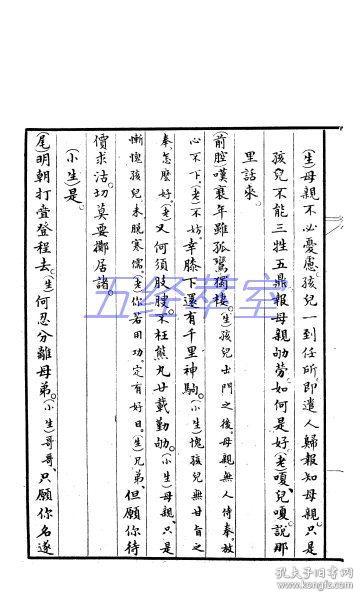 (生)母親不必憂慮。孩兒一到任所即遣人歸報知母親。只是
孩兒不能三牲五鼎報母親劬勞。如何是好。(老)嗄。兒嗄。說那
里話來。
(前腔)嘆衰年雖孤鸞獨棲。(生)孩兒出門之後。母親無人侍奉。放
心不下。(老)不妨。幸膝下還有千里神駒。(小生)愧孩兒無甘旨之
奉。怎麼好。(老)又何須肢膛。不枉熊丸廿載勤劬。(小生)母親。只是
慚愧孩兒。未脫寒儒。(老)你若用功。定有好日。(生)兄弟。但願你待
價求沽。切莫要擲居諸。
(小生)是。
(尾)明朝打疊登程去。(生)何忍分離母弟。(小生)哥哥。只願你名遂
五经萃室
孔夫子旧书网